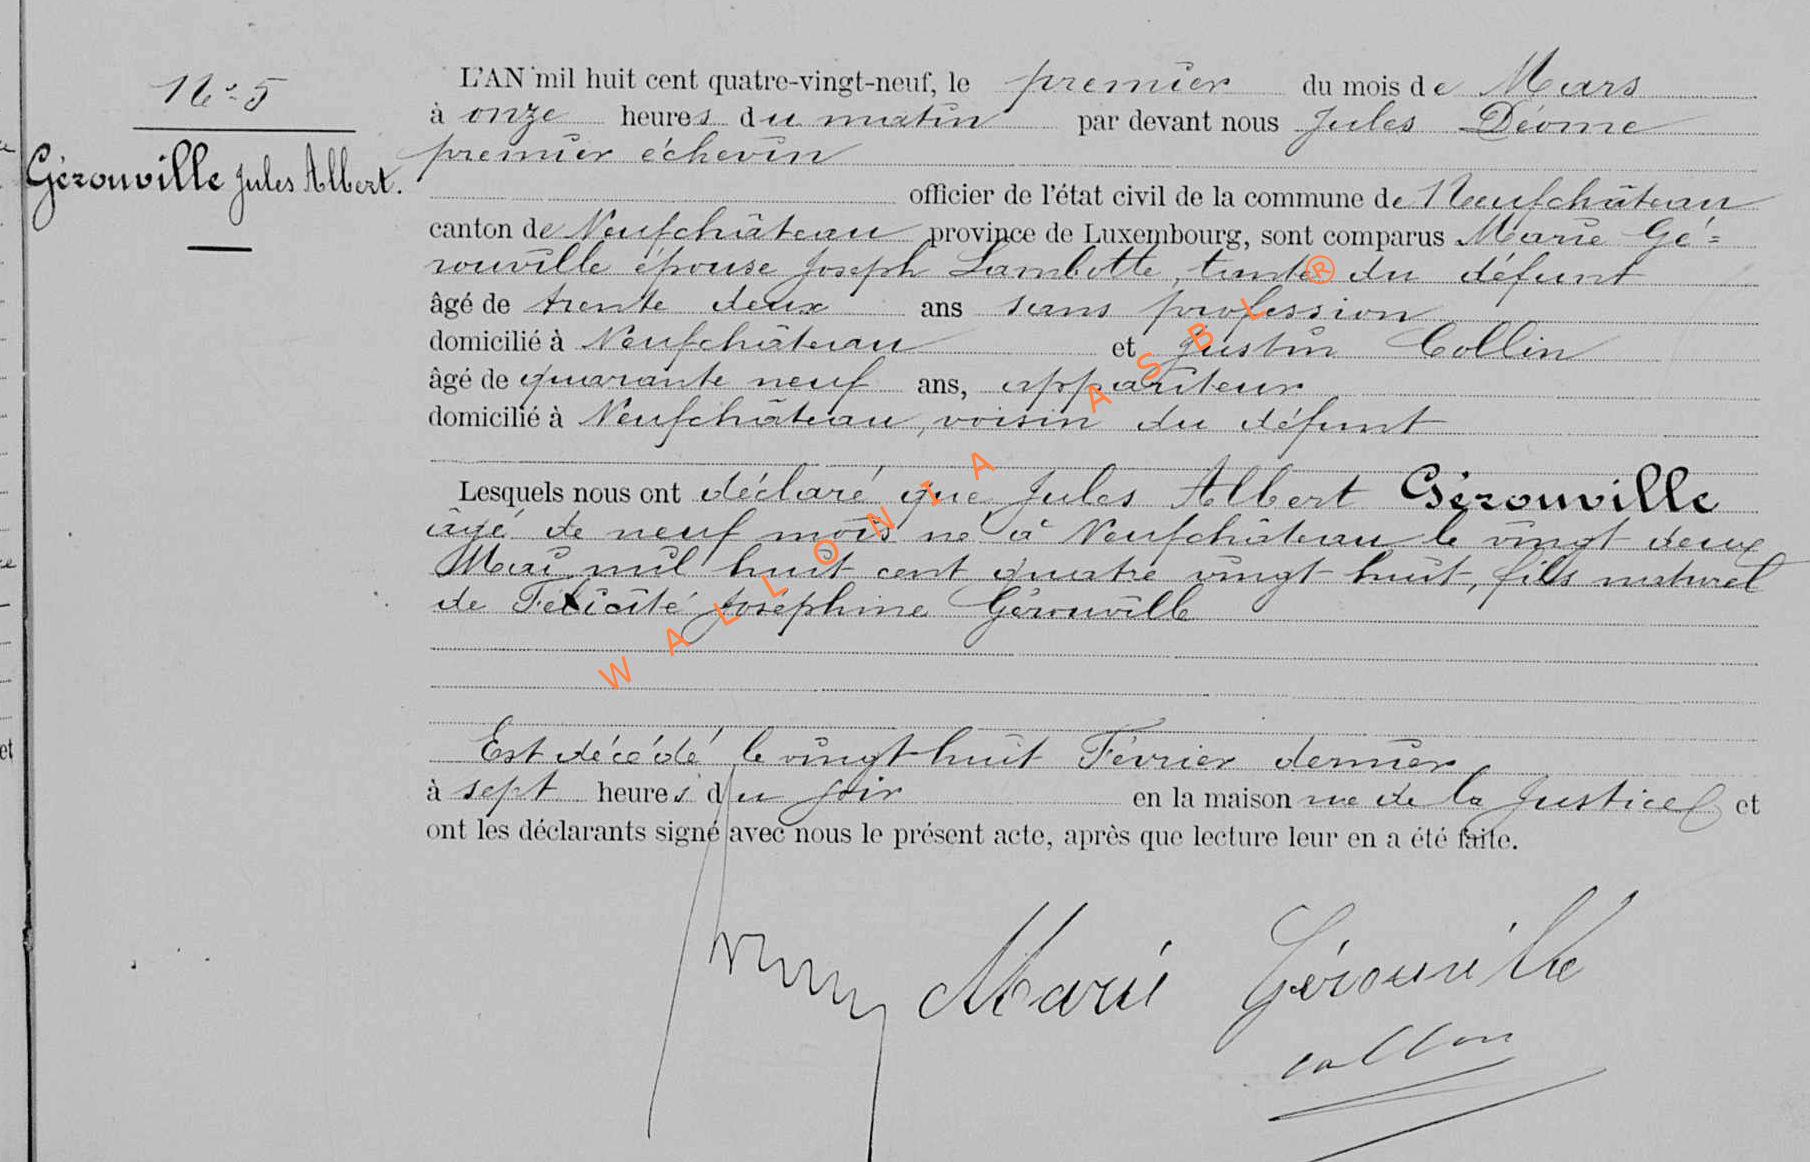 N° 5
Gérouville Jules Albert.
L'AN mil huit cent quatre-vingt-neuf, le premier du mois de Mars
à onze heures du matin par devant nous Jules Déome
premier échevin
officier de l'état civil de la commune de Neufchâteau
canton de Neufchâteau province de Luxembourg, sont comparus Marie Gé=
rouville épouse Joseph Lambotte, tante du défunt
âgé de trente deux ans sans profession
domicilié à Neufchâteau et Justin Collin
âgé de quarante neuf ans, appariteur
domicilié à Neufchâteau, voisin du défunt
Lesquels nous ont déclaré que Jules Albert Gérouville
âgé de neuf mois né à Neufchâteau le vingt deux
Mai mil huit cent quatre vingt huit, fils naturel
de Felicité Joséphine Gérouville
Est décédé le vingt-huit Février dernier
à sept heures du soir en la maison rue de la Justice et
ont les déclarants signé avec nous le présent acte, après que lecture leur en a été faite.
Marie Gérouville
Collin
WALLONIA ASBL ®
et